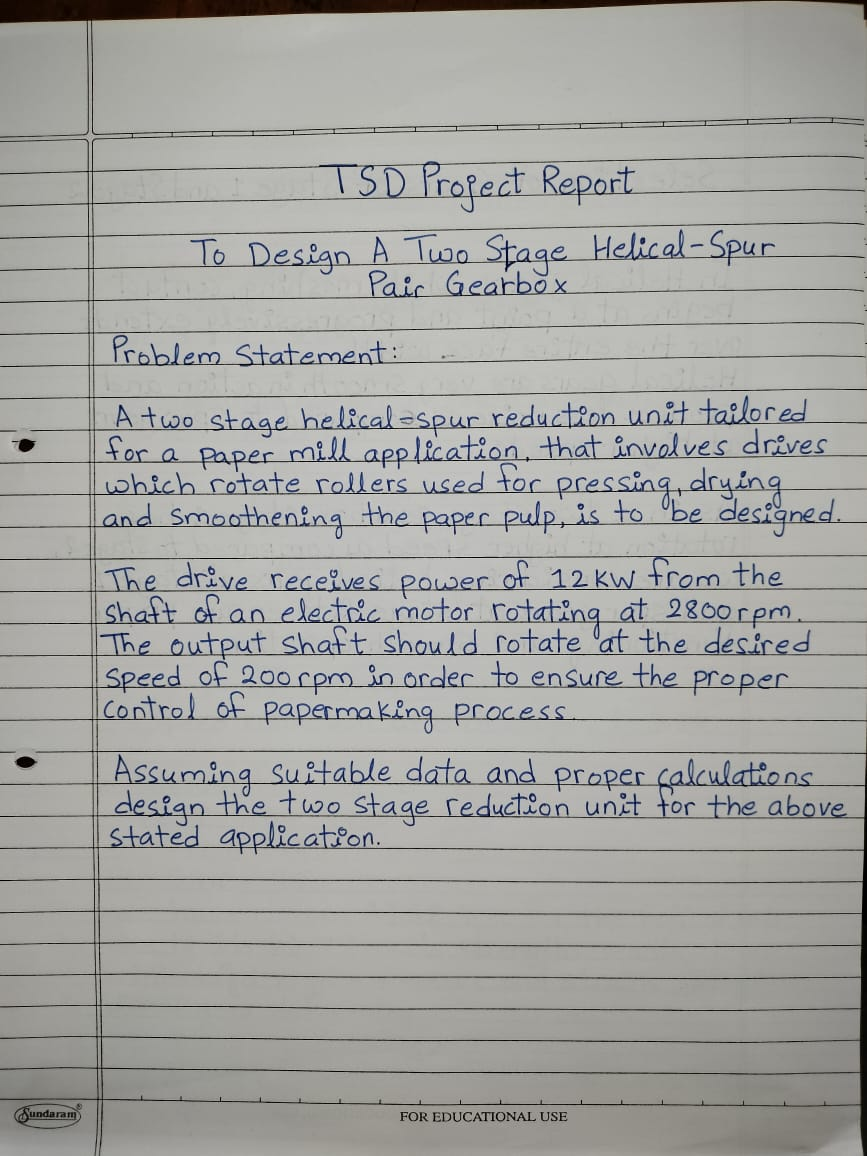 TSD Project Report
To Design A Two Stage Helical-Spur
Pair Gearbox
Problem Statement:
A two stage helical-spur reduction unit tailored
for a paper mill application, that involves drives
which rotate rollers used for pressing, drying
and smoothening the paper pulp, is to be designed.
The drive receives power of 12 kW from the
shaft of an electric motor rotating at 2800 rpm.
The output shaft should rotate at the desired
speed of 200 rpm in order to ensure the proper
control of papermaking process.
Assuming suitable data and proper calculations
design the two stage reduction unit for the above
stated application.
Sundaram®
FOR EDUCATIONAL USE